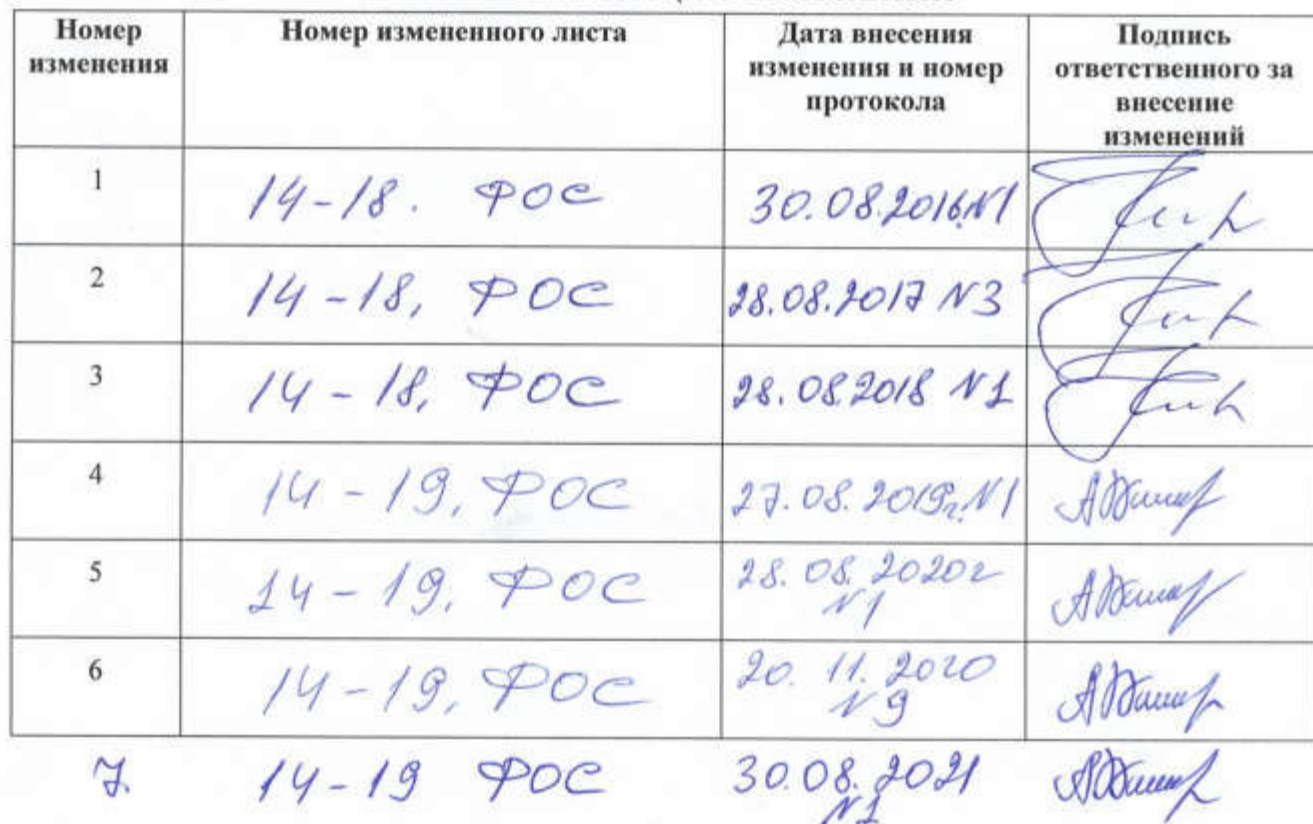 Номер изменения Номер измененного листа Дата внесения изменения и номер протокола Подпись ответственного за внесение изменений
1 14-18. ФОС 30.08.2016 №1
2 14-18, ФОС 28.08.2017 №3
3 14-18, ФОС 28.08.2018 №1
4 14-19, ФОС 27.08.2019г. №1
5 14-19, ФОС 28.08.2020г №1
6 14-19, ФОС 20.11.2020 №9
7. 14-19 ФОС 30.08.2021 №1